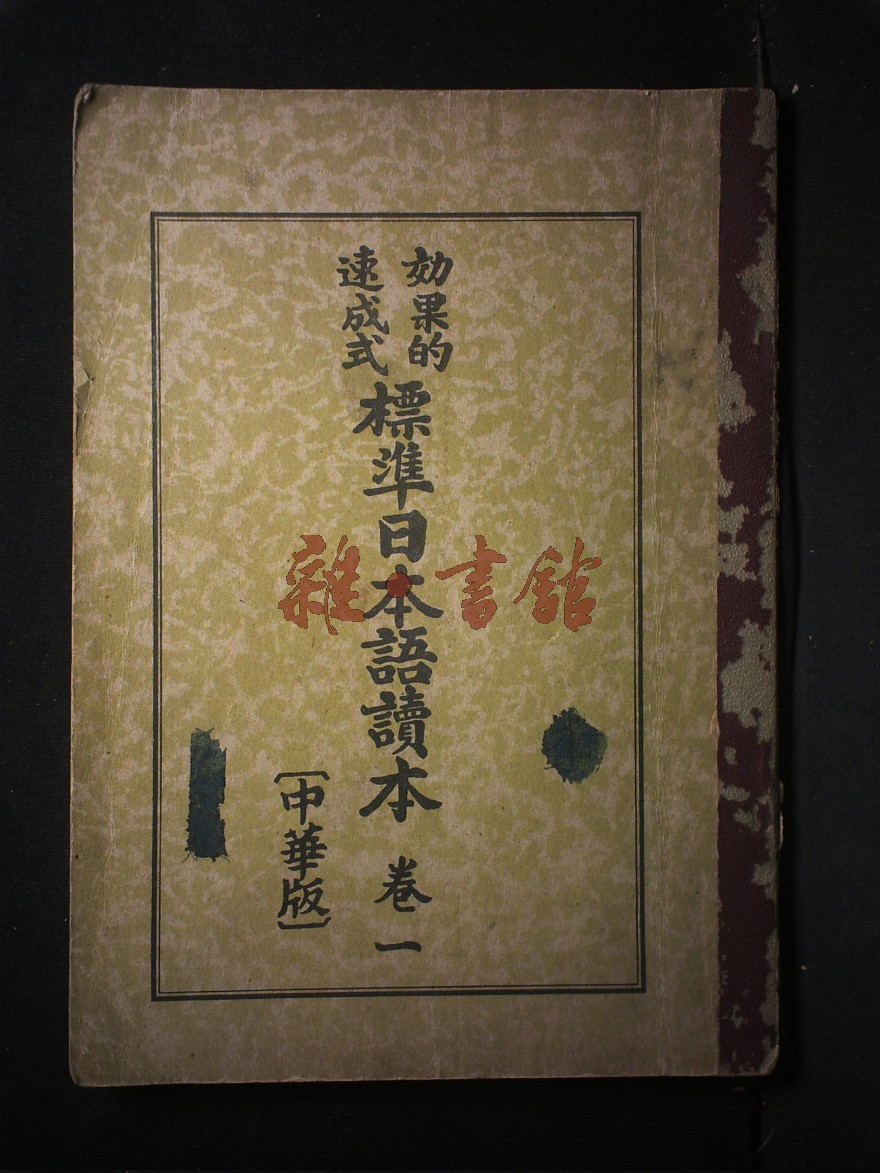 効果的
速成式
標準日本語讀本 卷一
〔中華版〕
雜·書館